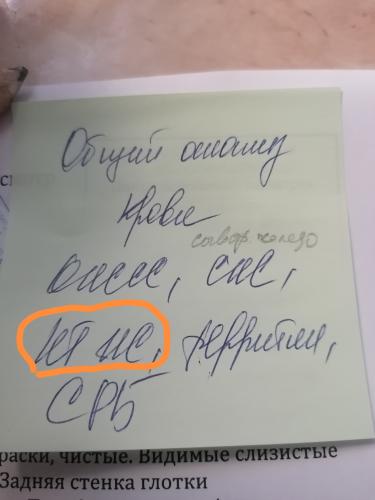 Общий анализ
крови
сывор. железо
ОЖСС,
ферритин,
СРБ
раски, чистые. Видимые слизистые
Задняя стенка глотки